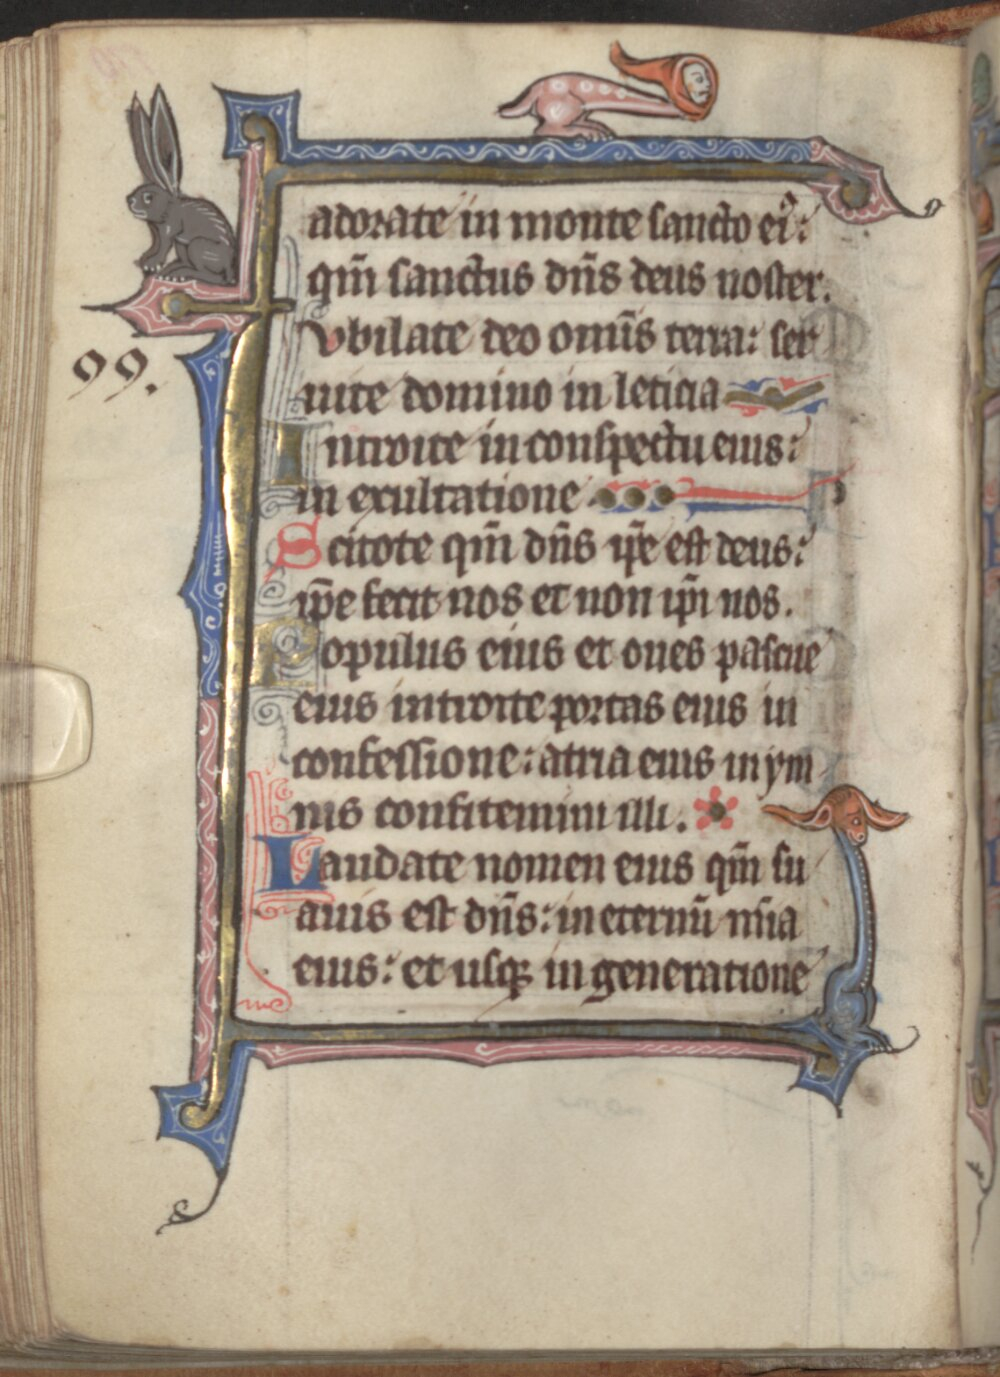 adorate in monte sancto ei᷒:
qm̄ sanctus dn̄s deus noster.
vbilate deo omīs terra: ser
uite domino in leticia
Introite in conspectu eius:
in exultatione
99.
Scitote qm̄ dn̄s ip̄e est deus:
ip̄e fecit nos et non ip̄i nos.
Populus eius et oues pascue
eius introite portas eius in
confessione: atria eius in ym
nis confitemini illi.
Laudate nomen eius qm̄ su
auis est dn̄s: in eternū mīa
eius: et usqꝫ in generatione